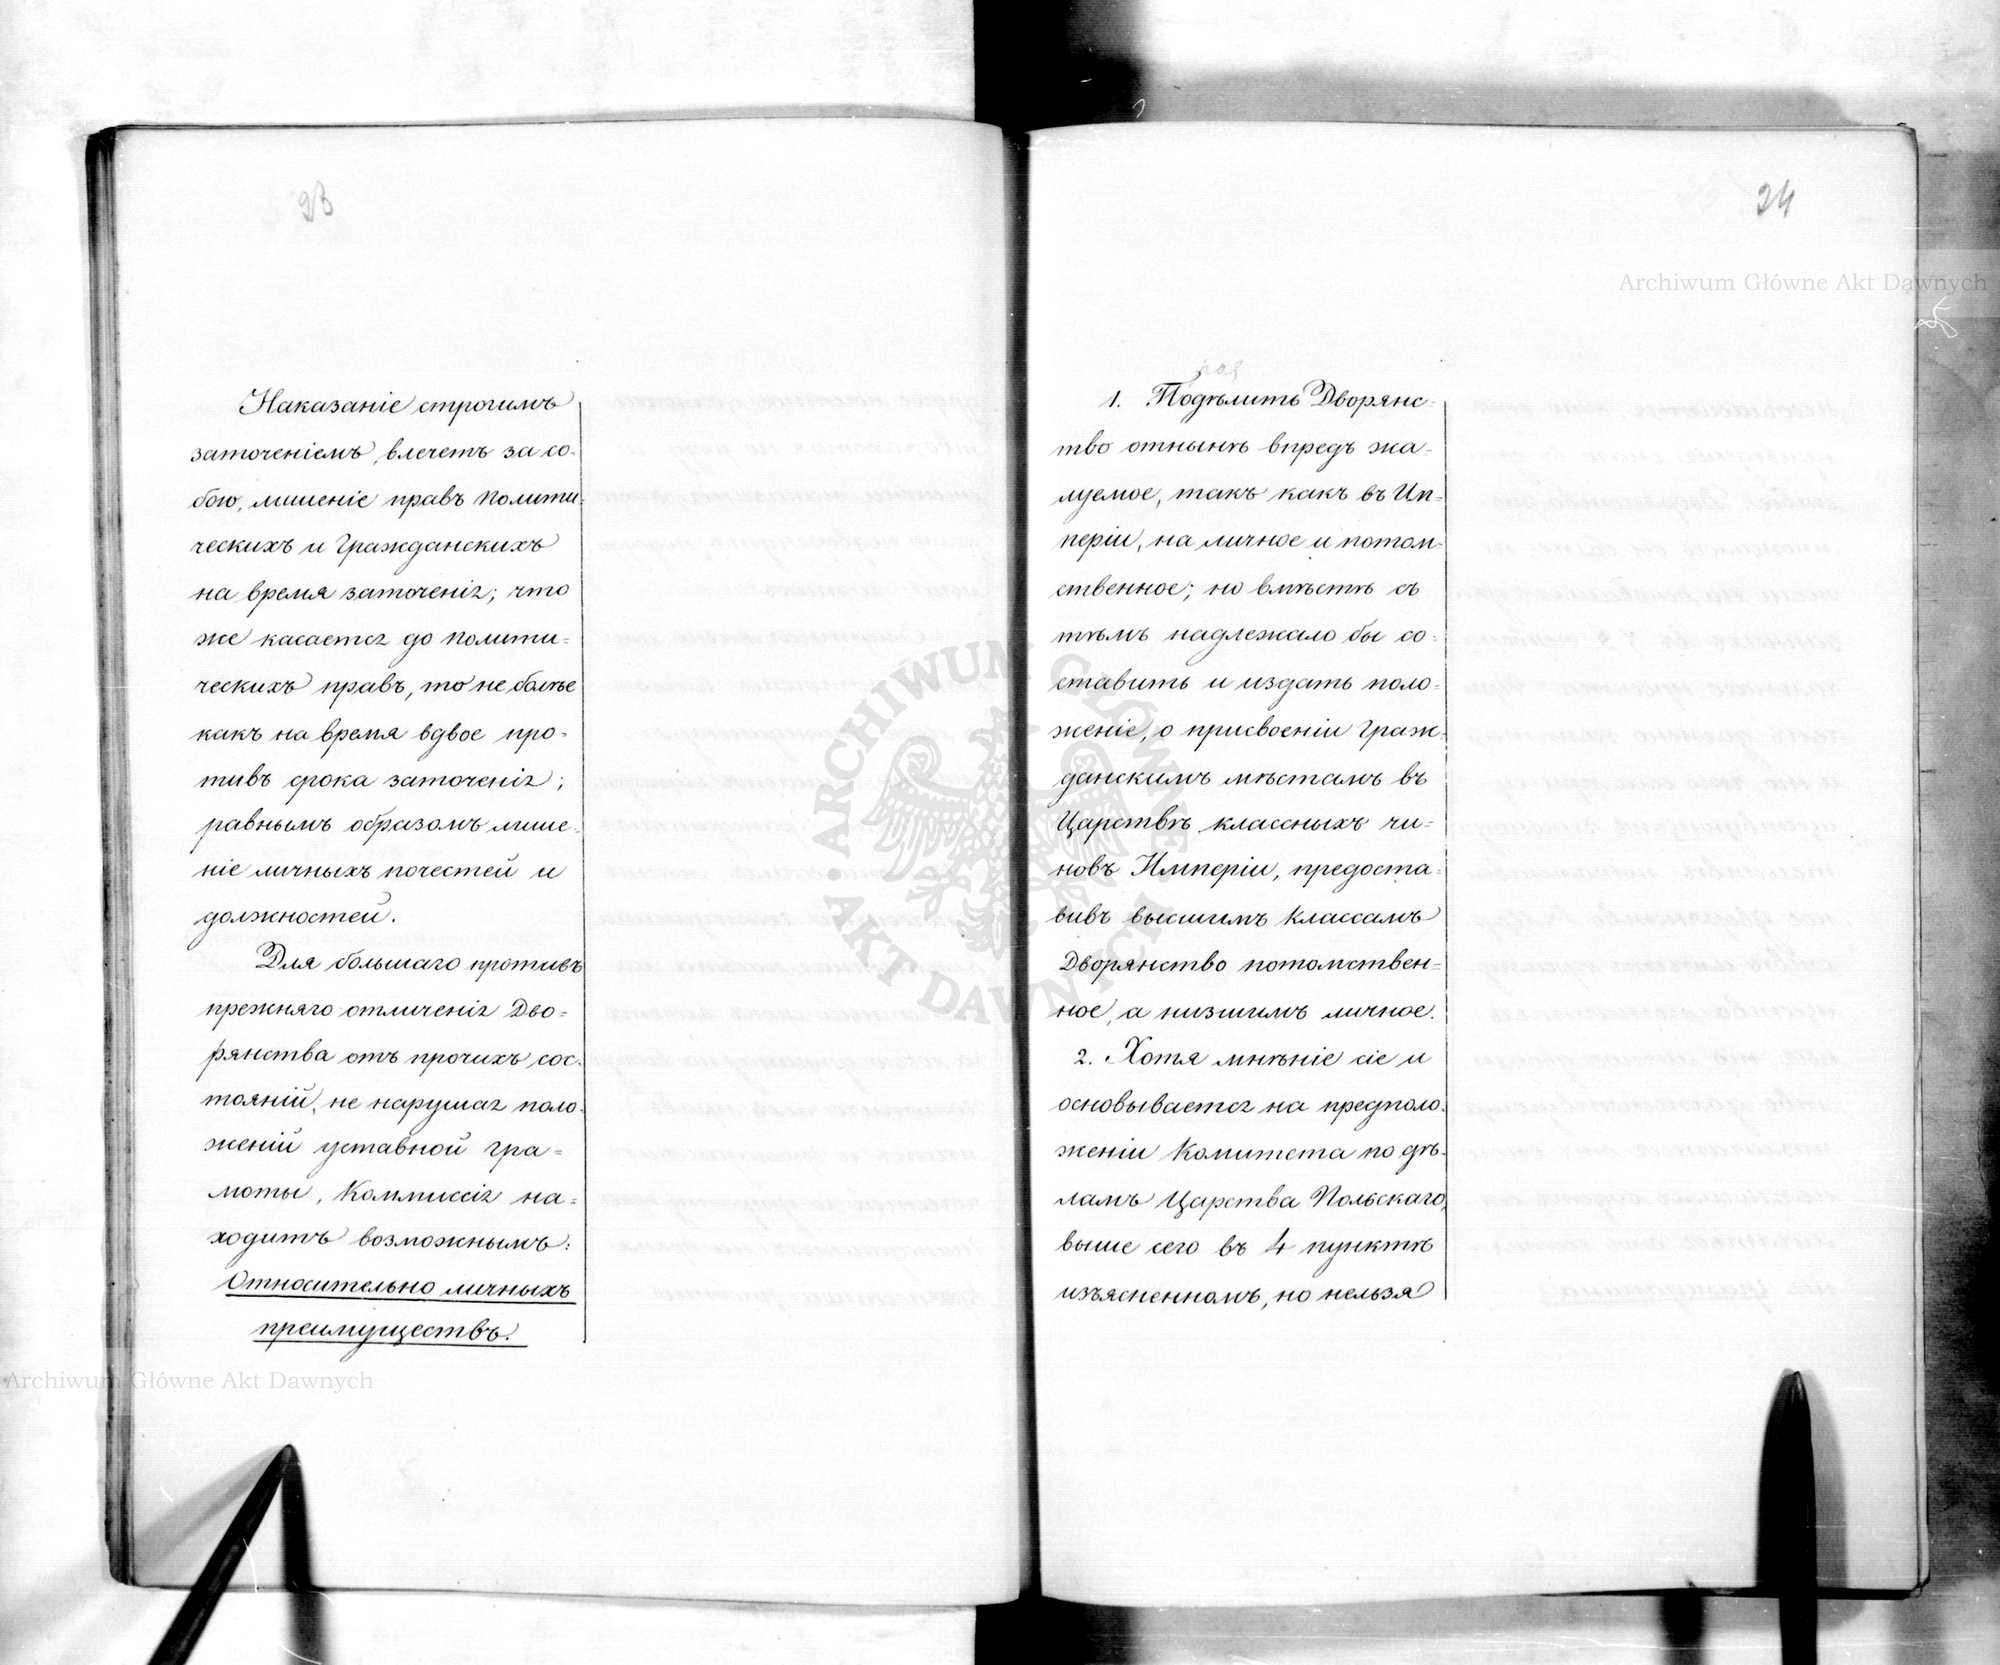 23
Наказаніе строгимъ
заточеніемъ, влечетъ за со-
бою, лишеніе правъ полити-
ческихъ и Гражданскихъ
на время заточенія; что
же касается до полити=
ческихъ правъ, то не болѣе
какъ на время вдвое про=
тивъ срока заточенія;
равнымъ образомъ лише-
ніе личныхъ почестей и
должностей.
Для большаго противъ
прежняго отличенія Дво=
рянства отъ прочихъ сос-
тояній, не нарушая поло-
женій уставной гра=
моты, Коммиссія на=
ходитъ возможнымъ:
Относительно личныхъ
преимуществъ.
24
раз
1. Подѣлить Дворянс-
тво отнынѣ впредъ жа-
луемое, такъ какъ въ Им-
періи, на личное и потом-
ственное; но вмѣстѣ съ
тѣмъ надлежало бы со-
ставить и издать поло=
женіе, о присвоеніи Граж-
данскимъ мѣстамъ въ
Царствѣ классныхъ чи=
новъ Имперіи, предоста=
вивъ высшимъ классамъ
Дворянство потомствен=
ное, а низшимъ личное.
2. Хотя мнѣніе сіе и
основывается на предполо-
женіи Комитета по дѣ-
ламъ Царства Польскаго,
выше сего въ 4 пунктѣ
изъясненномъ, но нельзя
Archiwum Główne Akt Dawnych
Archiwum Główne Akt Dawnych
ARCHIWUM GŁÓWNE AKT DAWNYCH